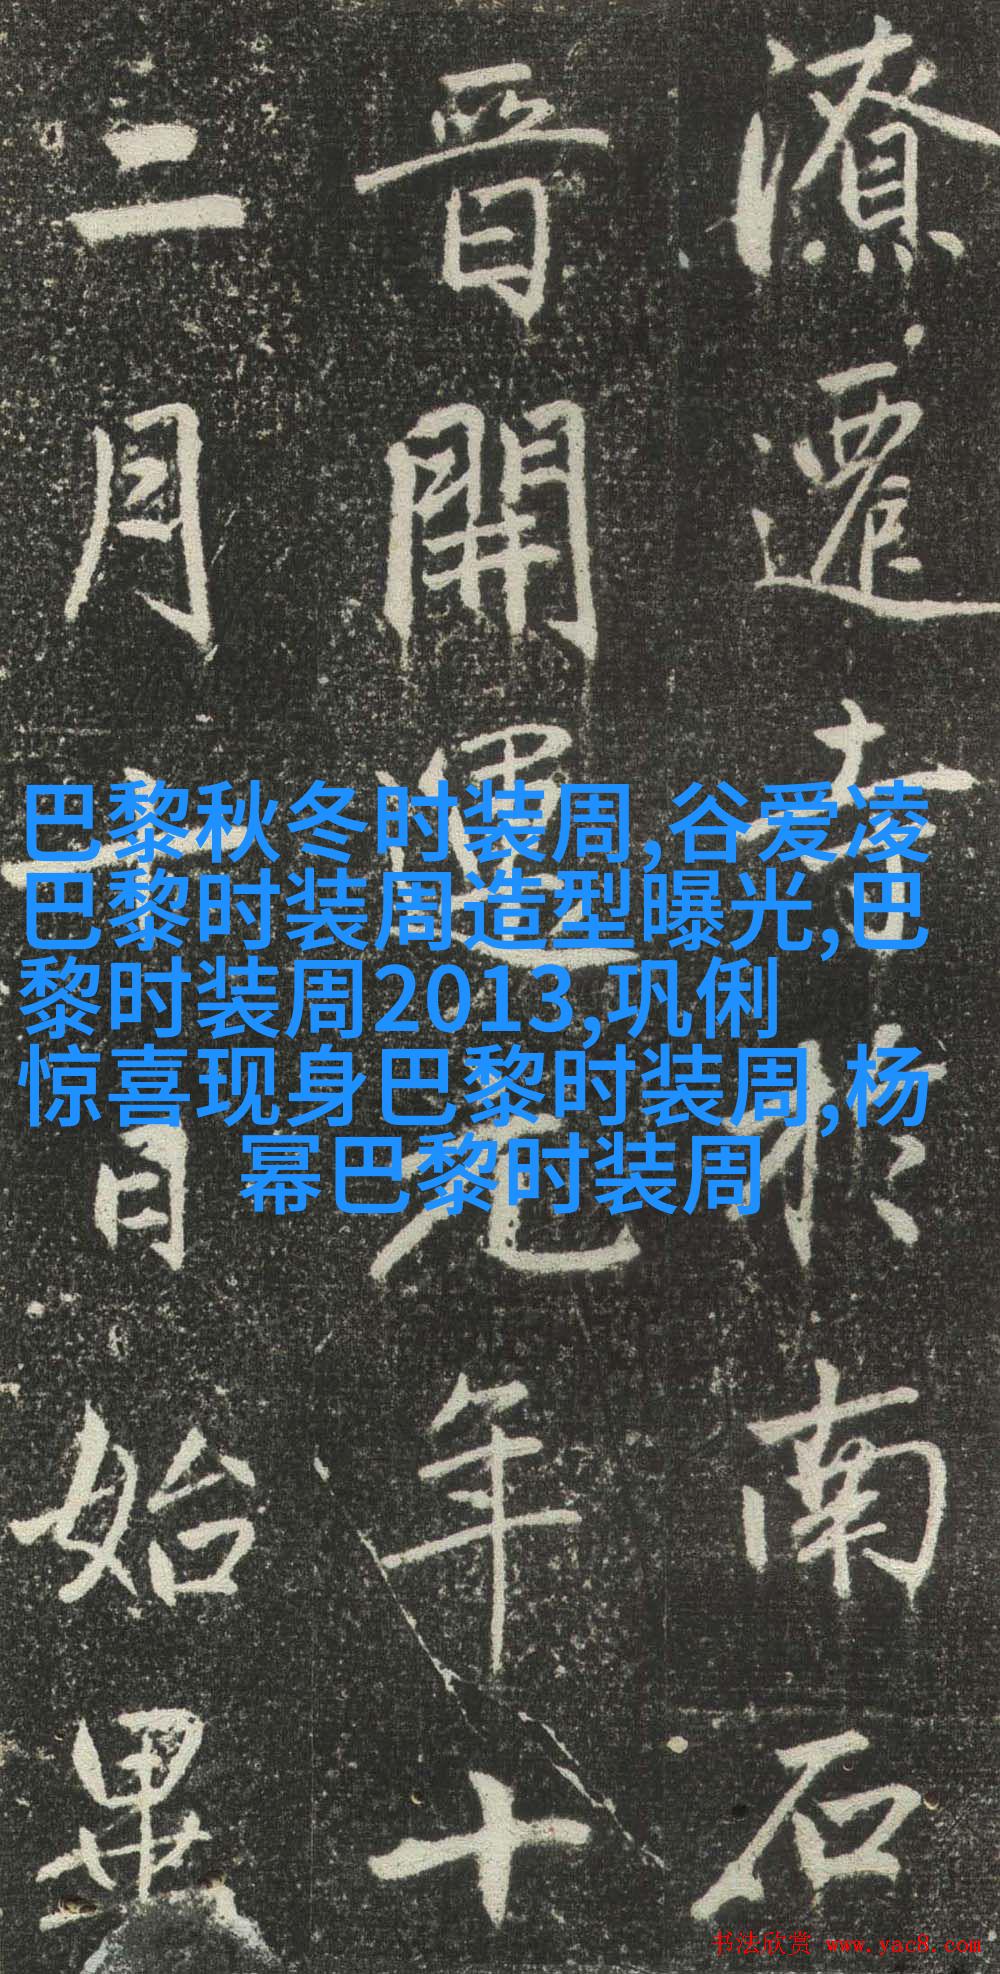 潦遷寺於南石
晉開運元年十
二月六日始畢
巴黎秋冬时装周,谷爱凌
巴黎时装周造型曝光,巴
黎时装周2013,巩俐
惊喜现身巴黎时装周,杨
幂巴黎时装周
书法欣赏 www.yac8.com